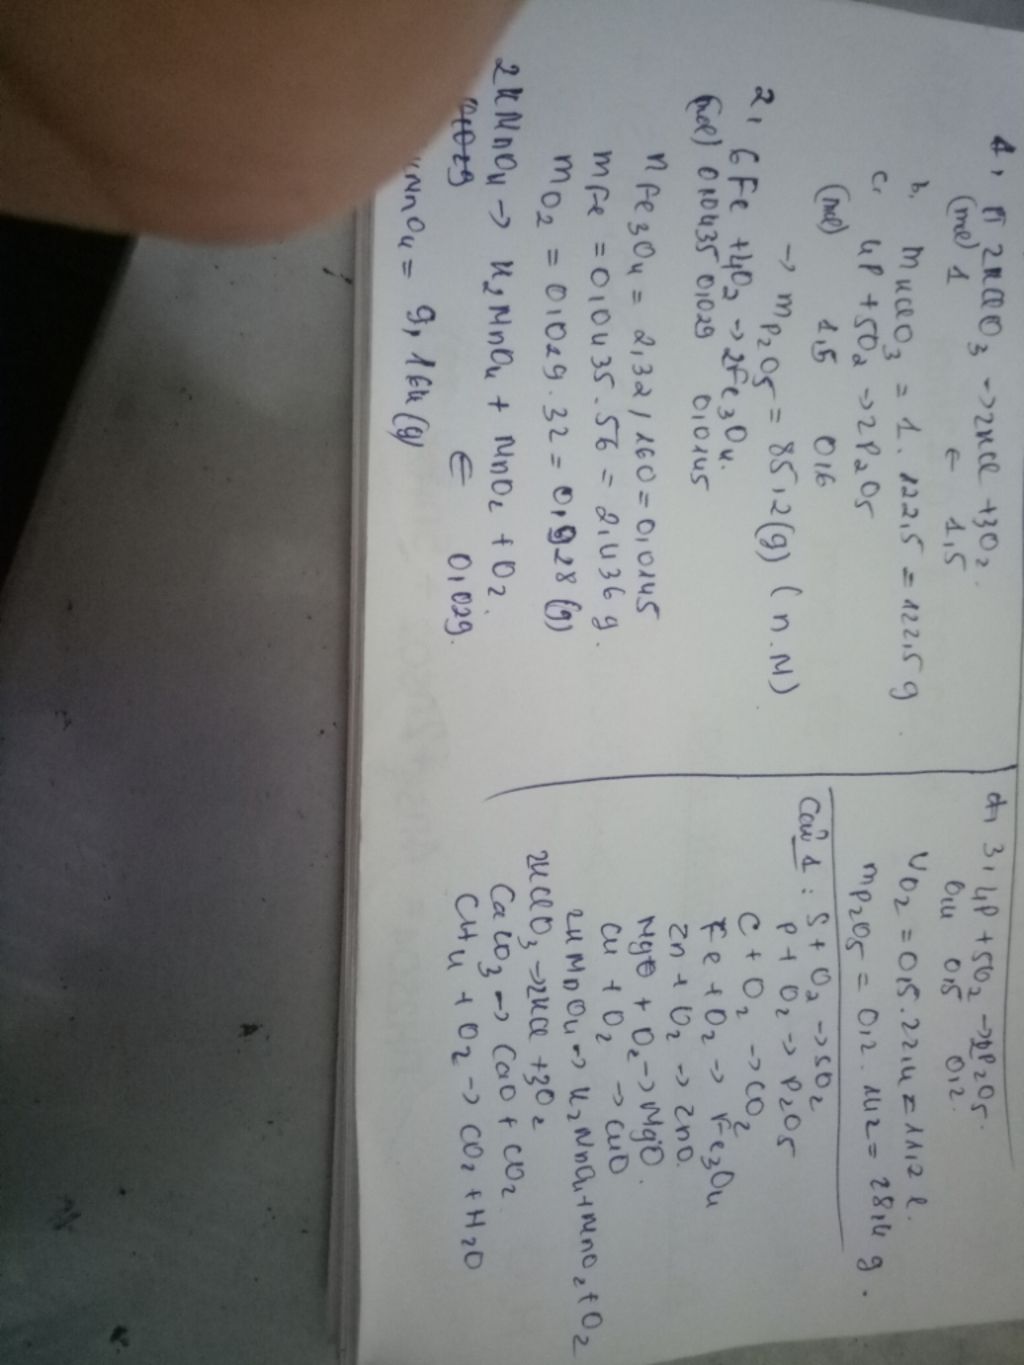 1, a 2KClO3 → 2KCl + 3O2.
(mol) 1 ← 1,5
b, mKClO3 = 1. 122,5 = 122,5 g
c, 4P + 5O2 → 2P2O5
(mol) 1,5 0,6
→ mP2O5 = 85,2 (g) (n.N)
2, 6Fe + 4O2 → 2Fe3O4.
(mol) 0,0435 0,029 0,0145
nFe3O4 = 2,32 / 160 = 0,0145
mFe = 0,0435.56 = 2,436 g.
mO2 = 0,029.32 = 0,928 (g)
2KMnO4 → K2MnO4 + MnO2 + O2.
← 0,029.
KMnO4 = 9,164 (g)
3, 4P + 5O2 → 2P2O5.
0,4 0,5 0,2.
VO2 = 0,5.22,4 = 11,2 l.
mP2O5 = 0,2. 142 = 28,4 g.
Câu 1: S + O2 → SO2
P + O2 → P2O5
C + O2 → CO2
Fe + O2 → Fe3O4
Zn + O2 → ZnO.
Mg + O2 → MgO.
Cu + O2 → CuO
2KMnO4 → K2MnO4 + MnO2 + O2
2KClO3 → 2KCl + 3O2
CaCO3 → CaO + CO2
CH4 + O2 → CO2 + H2O